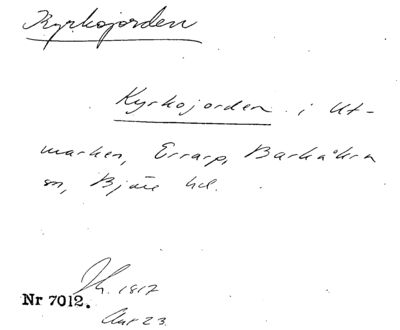 Kyrkojorden
Kyrkojorden i Ut-
marken, Errarp, Barkåkra
sn, Bjäre hd.
Nr 7012.
1817
23.